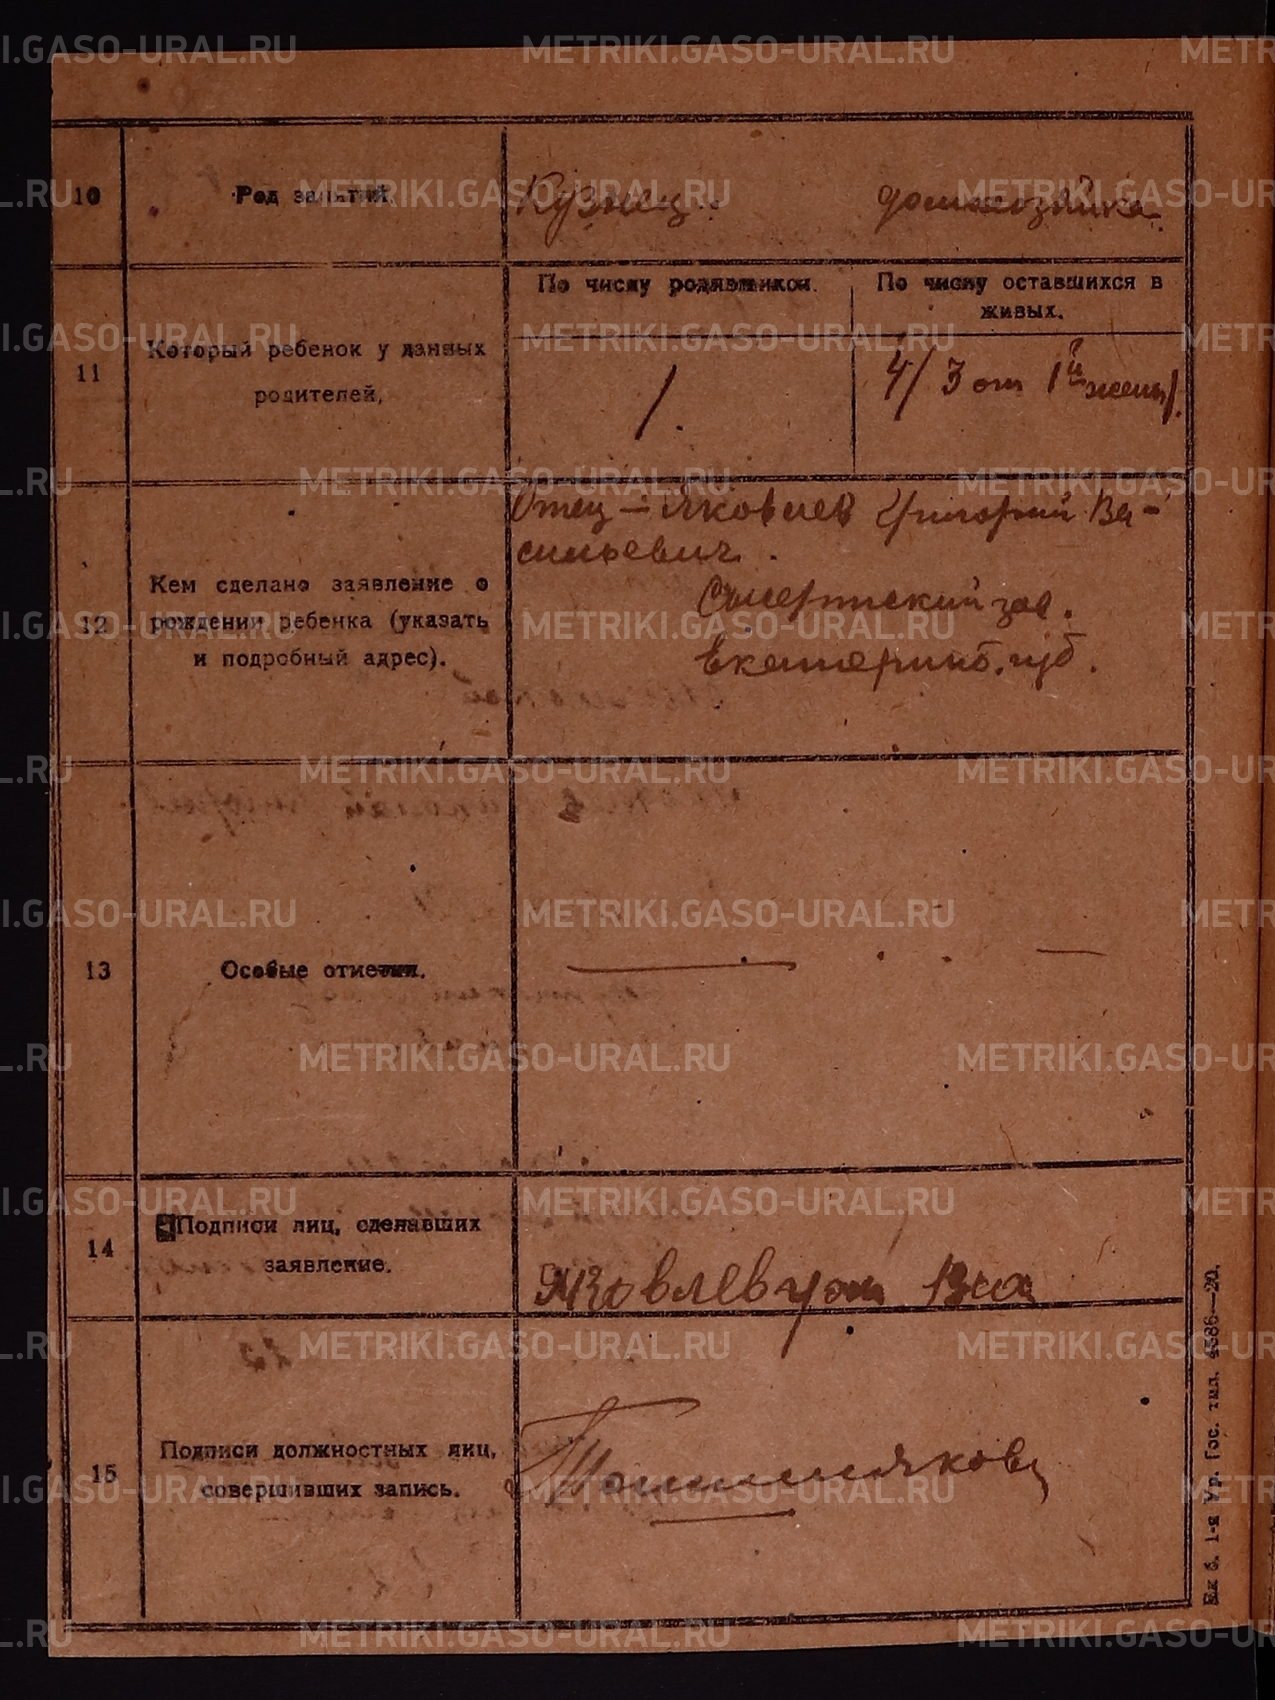 10
Род занятий.
Кузнец.
домохозяйка.
11
Который ребенок у данных
родителей,
По числу родившихся.
По числу оставшихся в
живых.
1.
4/ 3 от 1й жены/.
12
Кем сделано заявление о
рождении ребенка (указать
и подробный адрес).
Отец – Яковлев Григорий Ва-
сильевич.
Сысертский зав.
Екатеринб. губ.
13
Особые отметки.
14
Подписи лиц, сделавших
заявление.
Яковлев
15
Подписи должностных лиц,
совершивших запись.
Ек б. 1-я Ур. Гос. тип. 4586—20.
METRIKI.GASO-URAL.RU